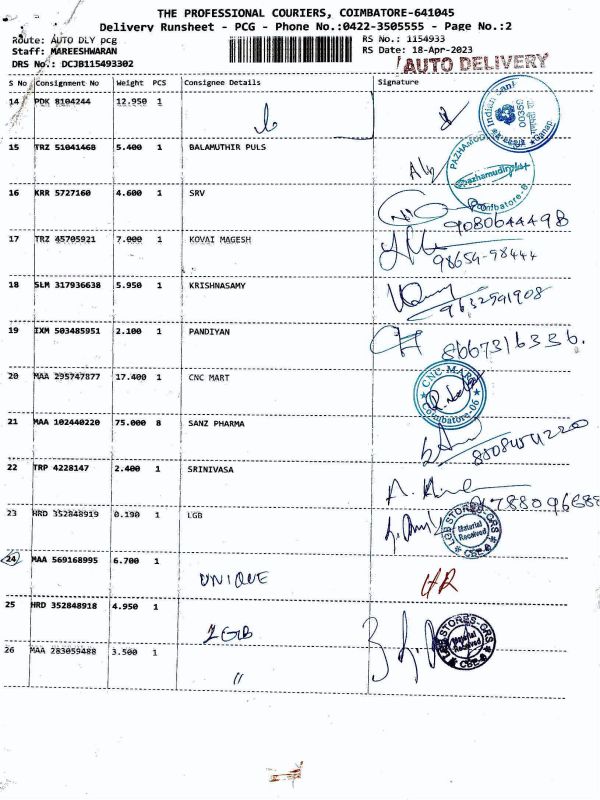 THE PROFESSIONAL COURIERS, COIMBATORE-641045
Delivery Runsheet - PCG - Phone No.:0422-3505555 - Page No.:2
Route: AUTO DLY pcg RS No.: 1154933
Staff: MAREESHWARAN RS Date: 18-Apr-2023
DRS No.: DCJB115493302 AUTO DELIVERY
S No Consignment No Weight PCS Consignee Details Signature
14 PDK 8104244 12.950 1
Indian Bank
15 TRZ 51041468 5.400 1 BALAMUTHIR PULS
16 KRR 5727160 4.600 1 SRV
Coimbatore-8
9080644498
17 TRZ 45705921 7.000 1 KOVAI MAGESH
98654-98444
18 SLM 317936638 5.950 1 KRISHNASAMY
9632591908
19 IXM 503485951 2.100 1 PANDIYAN
8667316336.
20 MAA 295747877 17.400 1 CNC MART
CNC-MART
Coimbatore-06
21 MAA 102440220 75.000 8 SANZ PHARMA
22 TRP 4228147 2.400 1 SRINIVASA
23 HRD 352848919 0.190 1 LGB
LGB STORES-GRS
Material
Received
CBE-6
24 MAA 569168995 6.700 1
UNIQUE HR
25 HRD 352848918 4.950 1
LGB
LGB STORES-GRS
Material
Received
CBE-6
26 MAA 283059488 3.500 1
"